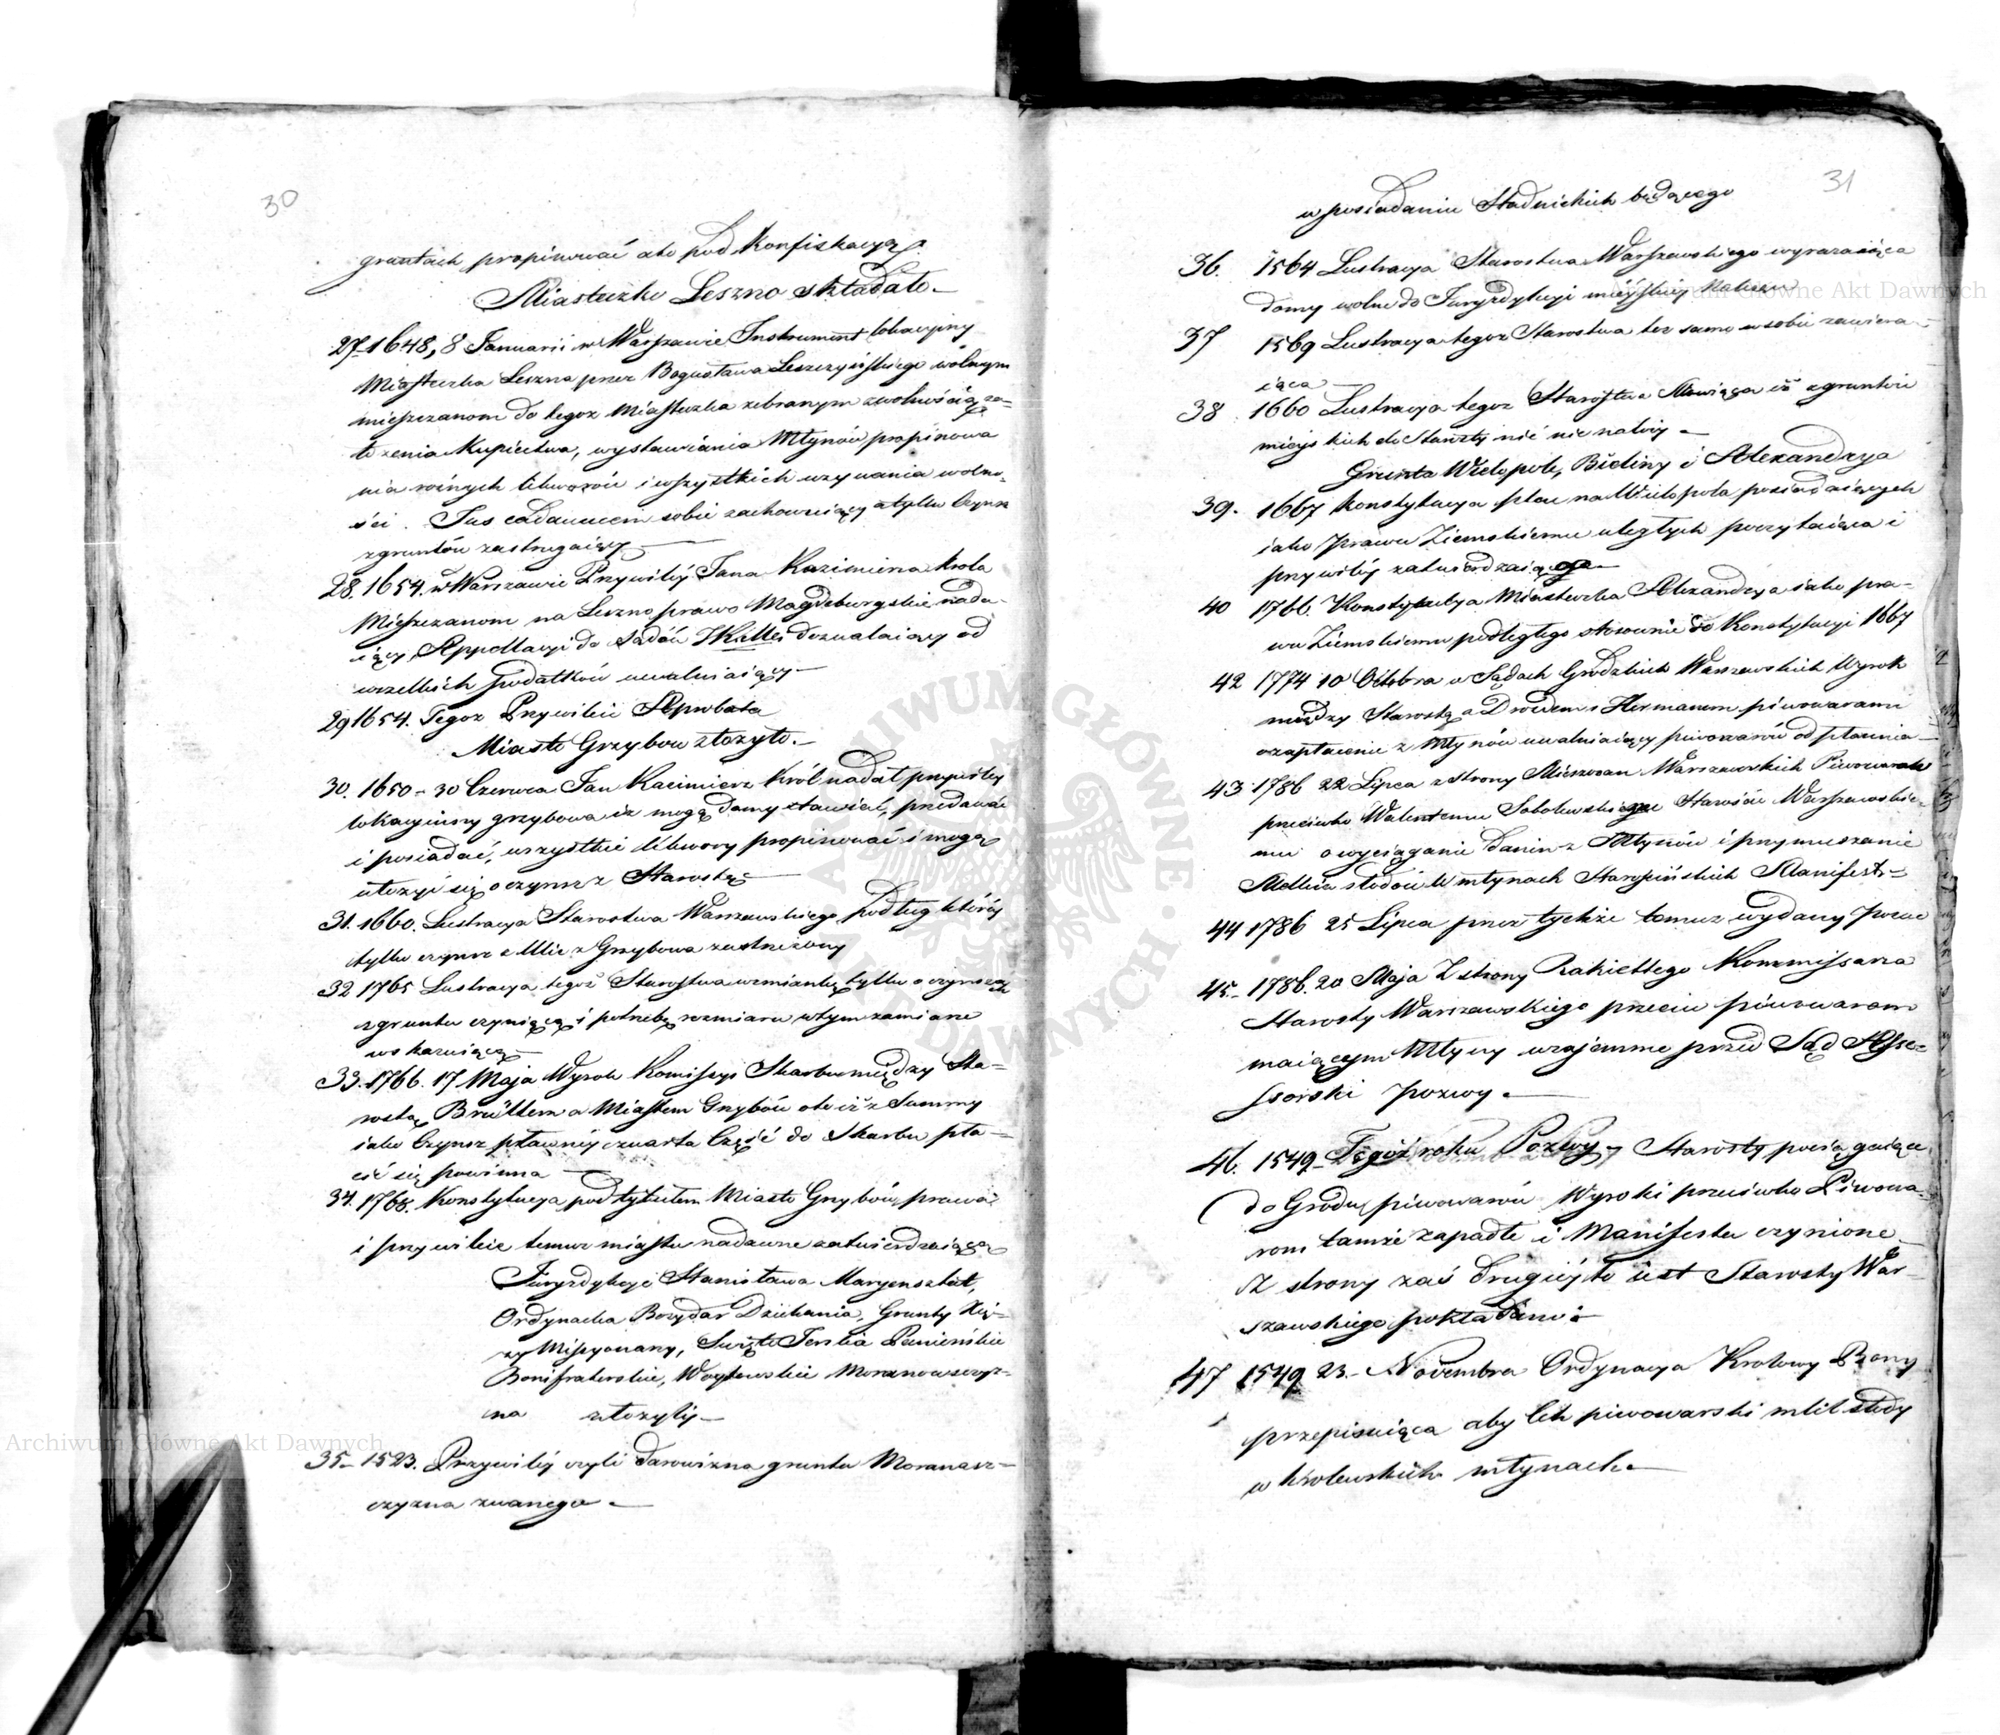 30
gruntach propinować ato pod Konfiskacyą
Miasteczko Leszno składało
27 1648, 8 Januarii w Warszawie Instrument lokacyiny
Miasteczka Leszna przez Bogusława Leszczyńskiego wolnym
mieszczanom do tegoż Miasteczka zebranym z wolnością za=
łożenia Kupiectwa, wystawiania Młynów, propinowa
nia rożnych likworów i wszystkich używania wolno=
ści. Jus caducum sobie zachowuiący a tylko Czynsz
z gruntów zastrzegaiący
28. 1654. w Warszawie Przywiléy Jana Kazimierza Krola
Mieszczanom na Leszno prawo Magdeburgskie nada=
iący, Appellacyi do Sądów JKMci dozwalaiący od
wszelkich podatków uwalniaiący
29 1654. Tegoż Przywileiu Aprobata
Miasto Grzybow złożyło.
30. 1650 - 30 Czerwca Jan Kazimierz Król nadał przywiléy
lokacyiny grzybowa iż mogą domy stawiać, przedawać
i posiadać, wszystkie likwory propinować i mogą
ułożyć się o czynsz z Starostą
31. 1660. Lustracya Starostwa Warszawskiego podług któréy
tylko czynsz z Ulic z Grzybowa zastrzeżony
32 1765 Lustracya tegoż Starostwa wzmiankę tylko o czynszach
z gruntu czyniąca i potrzebę rozmiaru w tym zamiarze
wskazuiąca
33. 1766. 17 Maja Wyrok Komissyi Skarbu między Sta=
rostą Brühlem a Miastem Grzybów oto iż z Summy
iako Czynsz płatnéy czwarta Część do Skarbu pła=
cić się powinna
34. 1768. Konstytucya pod tytułem Miasto Grzybów, prawa
i przywileie temuż miastu nadawne zatwierdzaiąca
Juryzdykcye Stanisława Maryensztat,
Ordynacka Bożydar Dziekania, Grunty Xię=
ży Missyonarzy, Święto Jerska Panieńskie
Bonifraterskie, Woytowskie Moranowszczyz=
na złożyły
35 - 1523. Przywiléy czyli darowizna gruntu Moranasz=
czyzna zwanego
31
w posiadaniu Stadnickich będącego
36. 1564 Lustracya Starostwa Warszawskiego wyrażaiąca
domy wolne do Juryzdykcyi mieyskiéy należeć
37 1569 Lustracya tegoż Starostwa też samo w sobie zawiera=
iąca
38 1660 Lustracya tegoż Starostwa Mówiąca iż z gruntów
mieyskich do Starosty nic nie należy
Grunta Wielopole, Bieliny i Alexandrya
39. 1667 Konstytucya plac na Wielopolu posiadaiących
iako prawu Ziemskiemu uległych poczytaiąca i
przywiléy zatwierdzaiąca
40 1766. Konstytucya Miasteczka Alexandrya iako pra=
wu Ziemskiemu podległego stosownie do Konstytucyi 1667
42 1774 10 Octobra w Sądach Grodzkich Warszawskich Wyrok
między Starostą a Drozdem i Hermanem piwowarami
o zapłacenie z Młynów uwalniaiący piwowarów od płacenia
43 1786 22 Lipca z strony Mieszczan Warszawskich Piwowarów
przeciwko Walentemu Sobolewskiemu Staroście Warszawskie=
mu o wyciąganie Danin z Młynów i przymuszanie
Mellcia słodów w młynach Starościńskich Manifest
44 1786 25 Lipca przez tychże temuż wydany Pozew
45. 1786. 20 Maja Z strony Rakiettego Kommissarza
Starosty Warszawskiego przeciw piwowarom
maiącym Młyny wzajemne przed Sąd Asse=
ssorski Pozwy
46. 1549 Tegoż roku Pozwy Starosty pociągaiące
do Grodu piwowarów Wyroki przeciwko Piwowa=
rom tamże zapadłe i Manifesta czynione
Z strony zaś drugiéy to iest Starosty War=
szawskiego pokładano
47 1549 23. Novembra Ordynacya Krolowy Bony
przepisuiąca aby Cech piwowarski mlił słody
w Krolewskich młynach